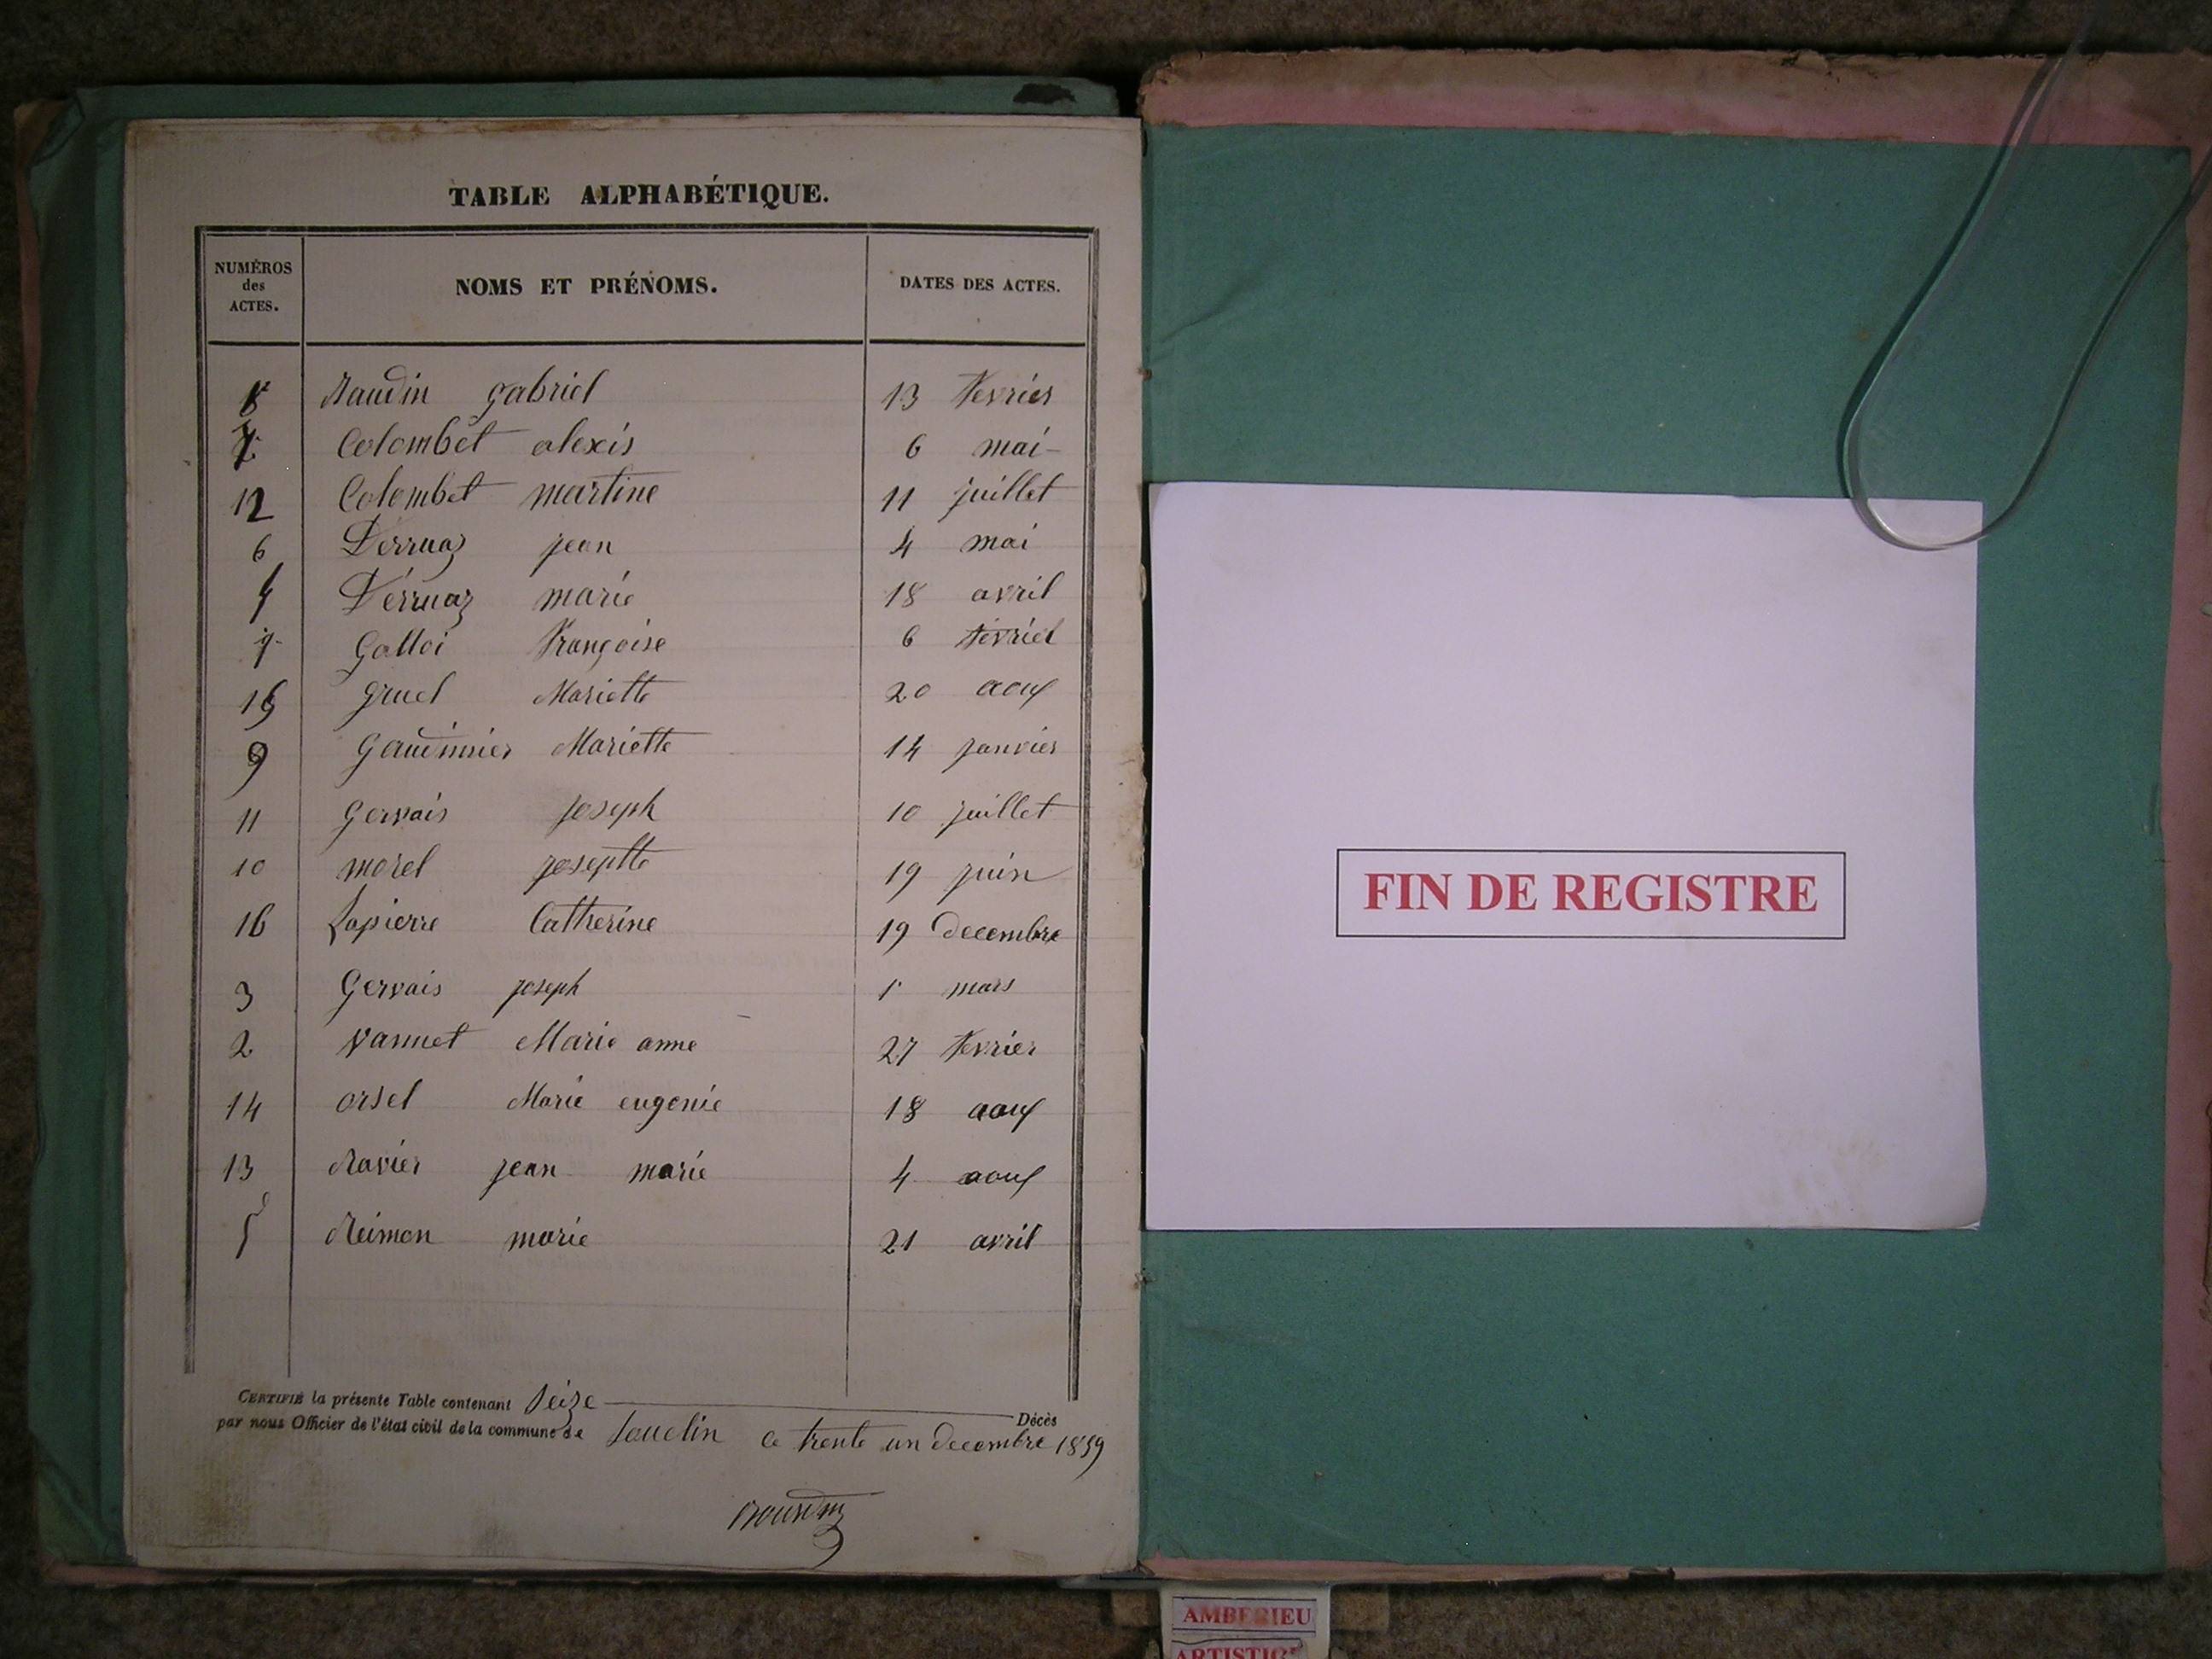 TABLE ALPHABÉTIQUE.
NUMÉROS des ACTES. NOMS ET PRÉNOMS. DATES DES ACTES.
gabriel 13 fevrier
Colombet alexis 6 mai
12 Colombet martine 11 juillet
6 Derruaz jean 4 mai
4 Dérruaz marie 18 avril
Galloi françoise 6
gruel Mariette 20 aout
9 Mariette 14 janvier
11 gervais joseph 10 juillet
10 morel josephte 19 juin
16 Lapierre Catherine 19 decembre
3 Gervais joseph 1 mars
2 vannet Marie anne 27 fevrier
14 orsel Marie eugenie 18 aout
13 Ravier jean marie 4 aout
5 Reimon marie 21 avril
CERTIFIÉ la présente Table contenant Seize Décès
par nous Officier de l'état civil de la commune de Souclin ce trente un decembre 1859
FIN DE REGISTRE
AMBERIEU